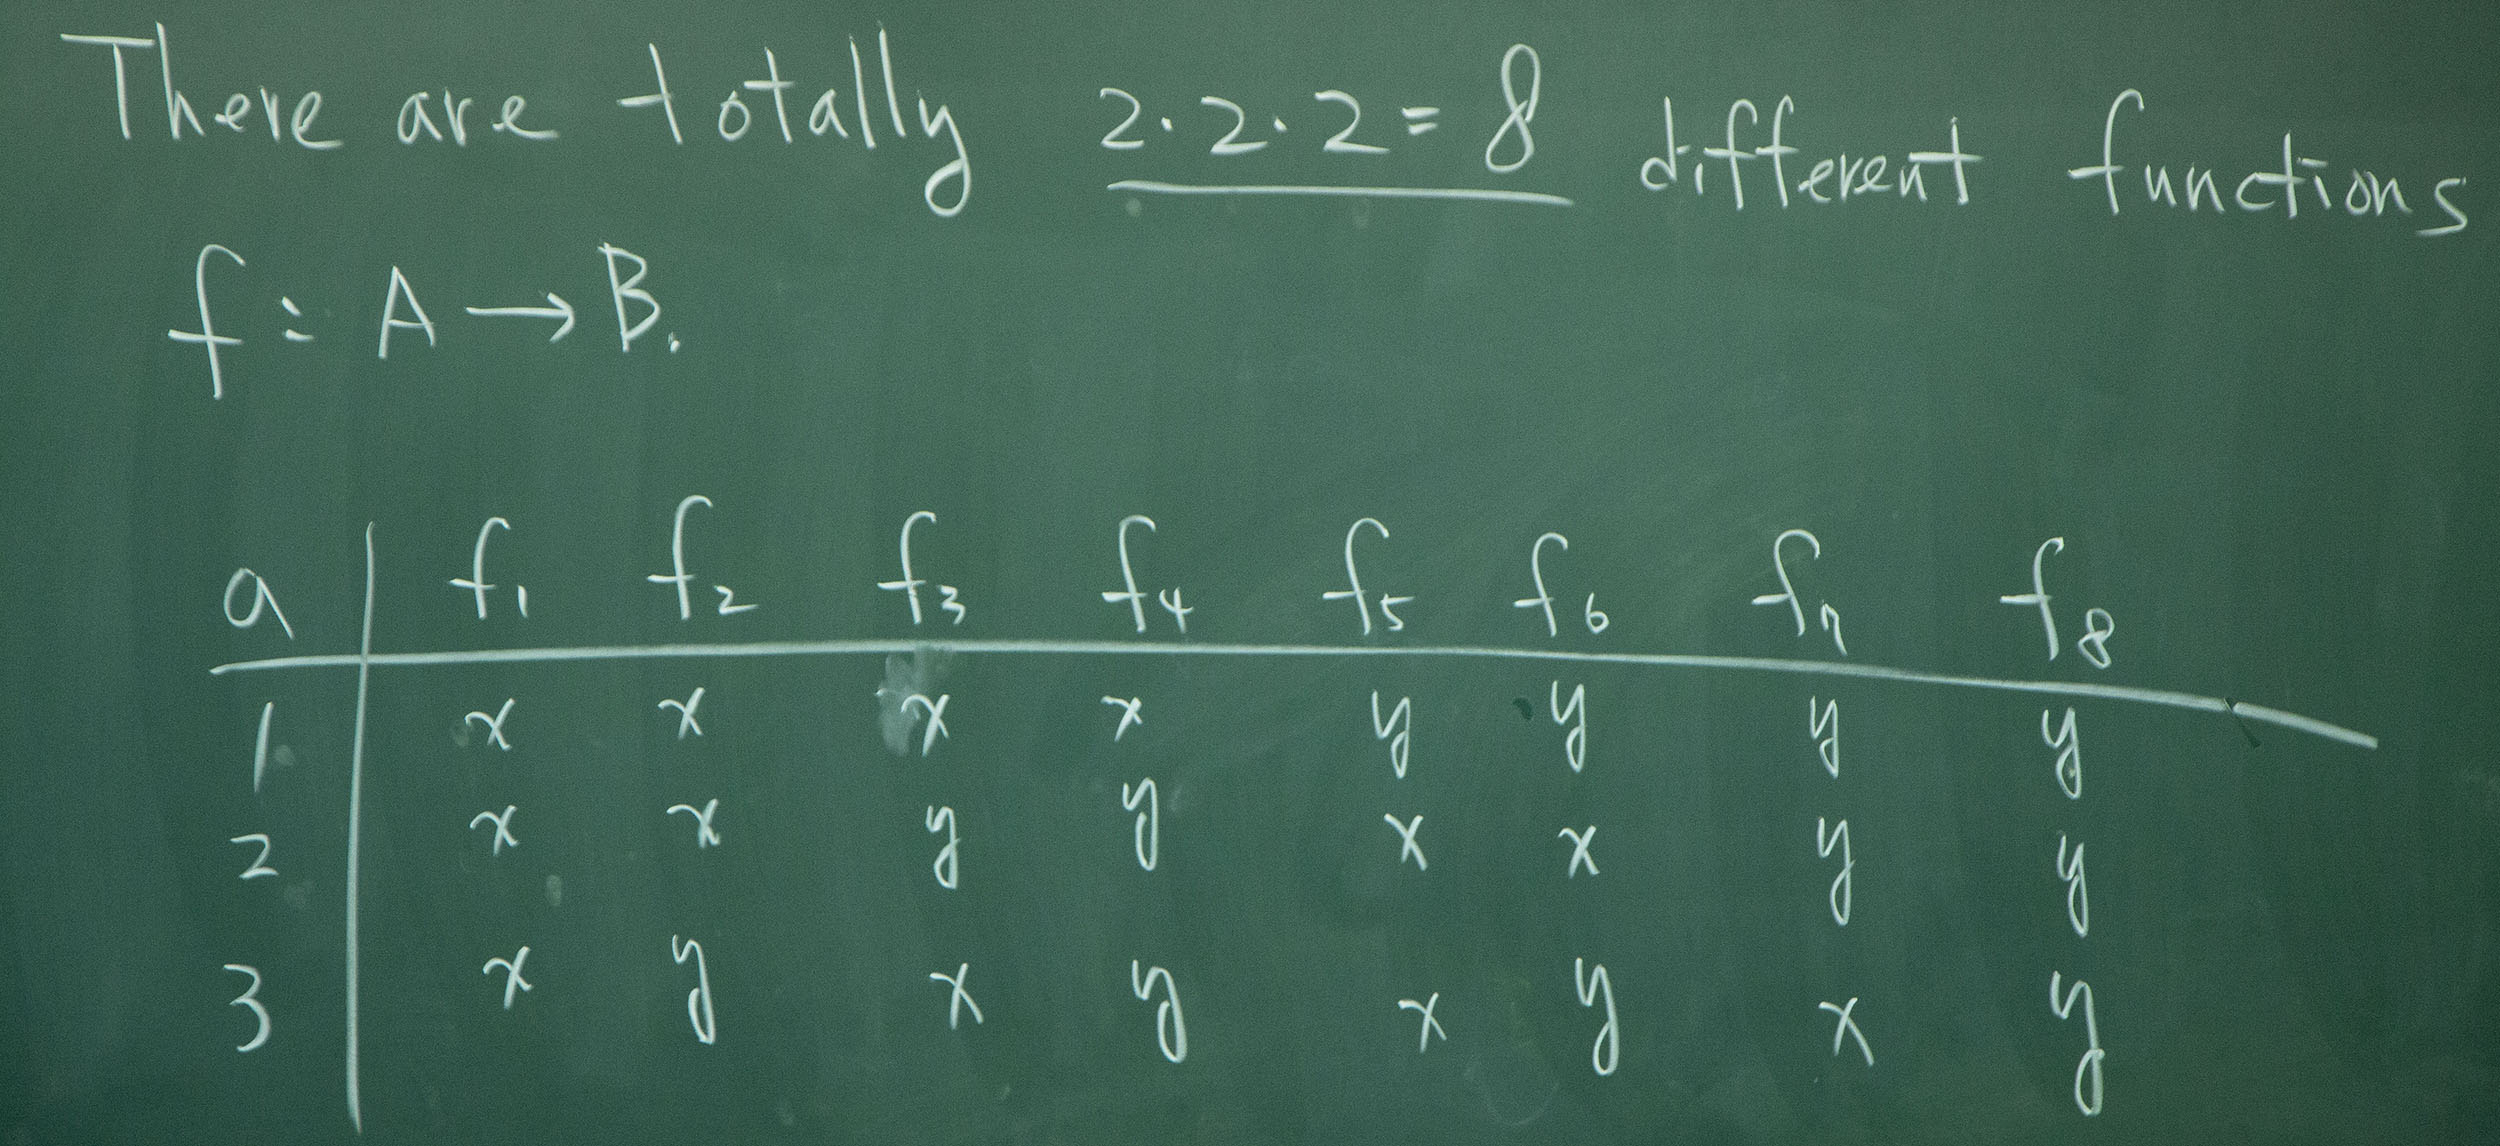 There are totally 2·2·2=8 different functions
f: A → B.
a | f₁ f₂ f₃ f₄ f₅ f₆ f₇ f₈
1 | x x x x y y y y
2 | x x y y x x y y
3 | x y x y x y x y